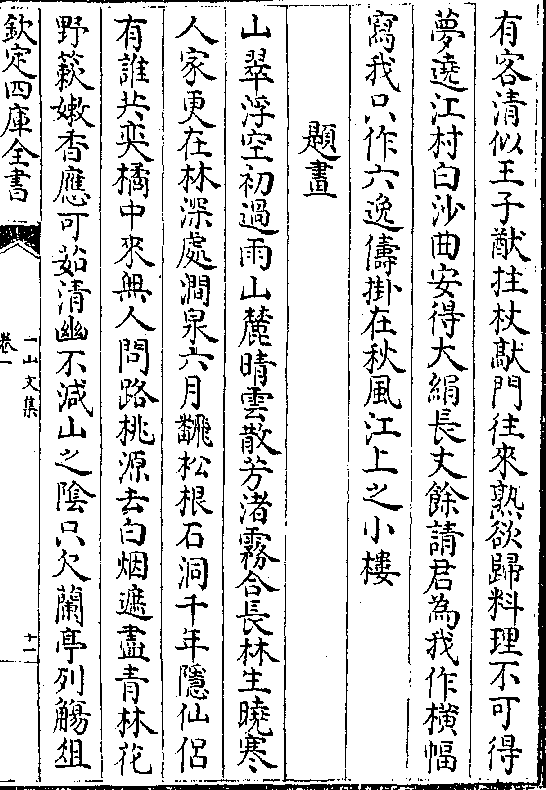 有客清似王子猷拄杖敲門往來熟欲歸料理不可得
夢遶江村白沙曲安得大絹長丈餘請君為我作橫幅
寫我只作六逸儔掛在秋風江上之小樓
題畫
山翠浮空初過雨山麓晴雲散芳渚霧合長林生曉寒
人家更在林深處澗泉六月飜松根石洞千年隱仙侣
有誰共奕橘中來無人問路桃源去白烟遮盡青林花
野蔌嫩香應可茹清幽不減山之陰只欠蘭亭列觴俎
欽定四庫全書
一山文集
卷一
十一